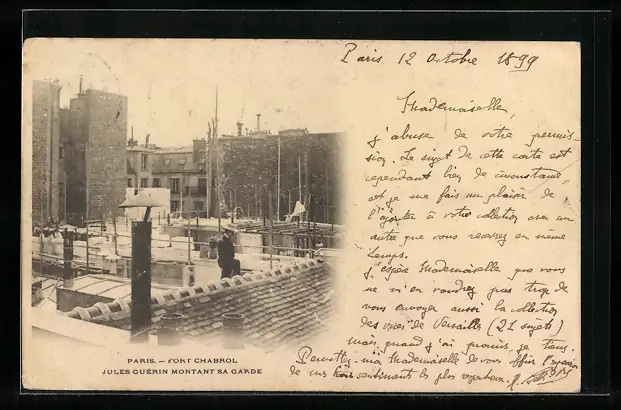 Paris 12 Octobre 1899
Mademoiselle,
j'abuse de votre permis-
sion. Le sujet de cette carte est
cependant bien de circonstance,
et je me fais un plaisir de
l'ajouter à votre collection avec un
autre que vous recevrez en même
temps.
J'espère Mademoiselle que vous
ne m'en voudrez pas trop de
vous envoyer aussi la collection
des vues de Versailles (21 sujets)
mais quand j'ai promis, je tiens.
Permettez-moi Mademoiselle de vous offrir
de mes sentiments les plus respectueux.
PARIS. — FORT CHABROL
JULES GUÉRIN MONTANT SA GARDE